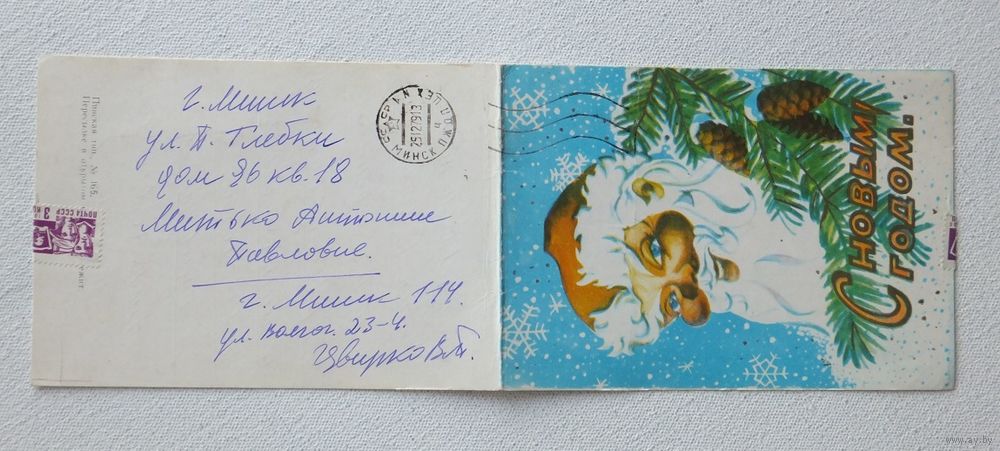 г. Минск
ул. П. Глебки
дом 86 кв. 18
Митько Антонине
Павловне.
г. Минск 114.
ул. Волгог. 23-4.
Цвирко В.М.
МИНСК
251279 13
ПОЧТА СССР
3
Пинская тип. № 165.
С НОВЫМ
ГОДОМ.
www.ay.by